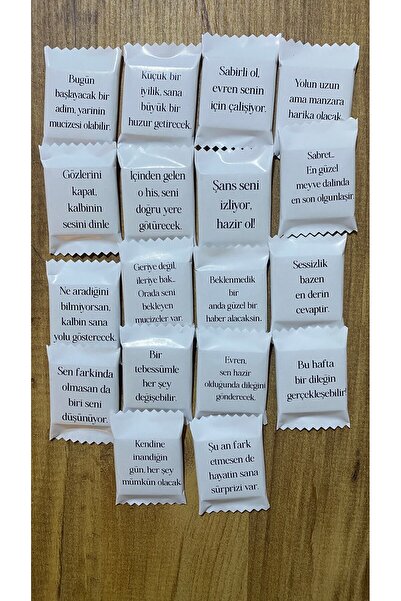 Bugün
başlayacak bir
adım, yarinin
mucizesi olabilir.
Küçük bir
iyilik, sana
büyük bir
huzur getirecek.
Sabirli ol,
evren senin
için çalişiyor.
Yolun uzun
ama manzara
harika olacak.
Gözlerini
kapat,
kalbinin
sesini dinle
Içinden gelen
o his, seni
doğru yere
götürecek.
Şans seni
izliyor,
hazir ol!
Sabret..
En güzel
meyve dalinda
en son olgunlaşir.
Ne aradiğini
bilmiyorsan,
kalbin sana
yolu gösterecek.
Geriye değil,
ileriye bak..
Orada seni
bekleyen
mucizeler var.
Beklenmedik
bir
anda güzel bir
haber alacaksın.
Sessizlik
bazen
en derin
cevaptir.
Sen farkinda
olmasan da
biri seni
düşünüyor.
Bir
tebessümle
her şey
değişebilir.
Evren,
sen hazir
olduğunda dileğini
gönderecek.
Bu hafta
bir dileğin
gerçekleşebilir!
Kendine
inandiğin
gün, her şey
mümkün olacak
Şu an fark
etmesen de
hayatin sana
sürprizi var.